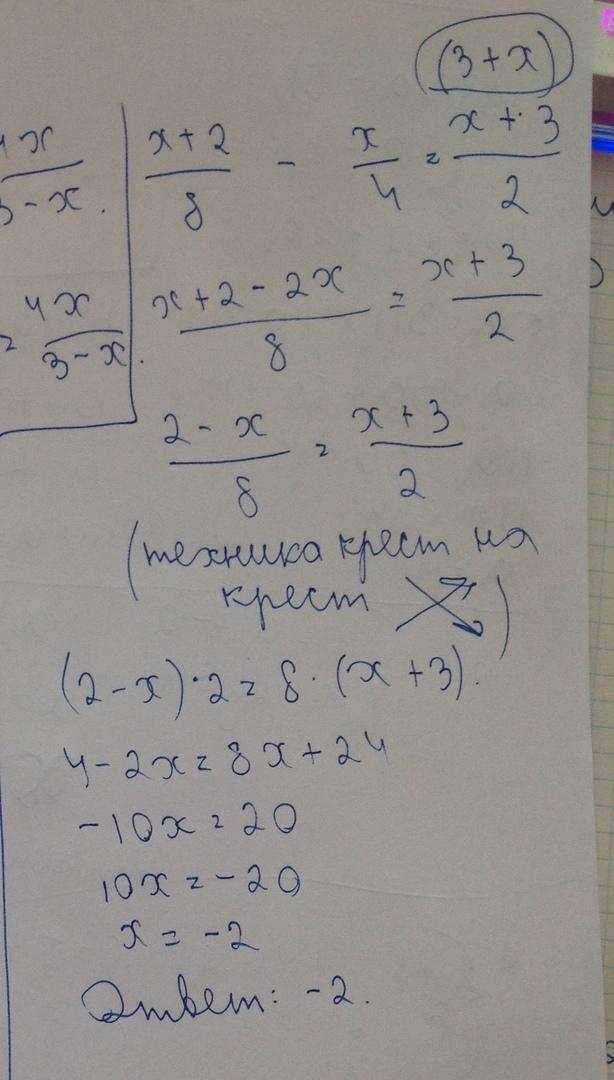 (3+x)
4x/3-x.
(x+2)/8 - x/4 = (x+3)/2
= 4x/3-x.
(x+2-2x)/8 = (x+3)/2
(2-x)/8 = (x+3)/2
(техника крест на
крест )
(2-x)·2=8·(x+3).
4-2x=8x+24
-10x=20
10x=-20
x=-2
Ответ: -2.